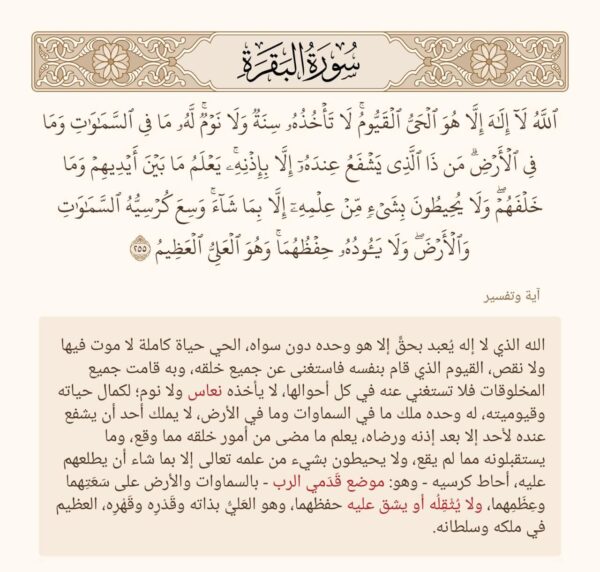 سُورَةُ البَقَرَةِ
ٱللَّهُ لَآ إِلَـٰهَ إِلَّا هُوَ ٱلْحَىُّ ٱلْقَيُّومُ ۚ لَا تَأْخُذُهُۥ سِنَةٌ وَلَا نَوْمٌ ۚ لَّهُۥ مَا فِى ٱلسَّمَـٰوَٰتِ وَمَا
فِى ٱلْأَرْضِ ۗ مَن ذَا ٱلَّذِى يَشْفَعُ عِندَهُۥٓ إِلَّا بِإِذْنِهِۦ ۚ يَعْلَمُ مَا بَيْنَ أَيْدِيهِمْ وَمَا
خَلْفَهُمْ ۖ وَلَا يُحِيطُونَ بِشَىْءٍ مِّنْ عِلْمِهِۦٓ إِلَّا بِمَا شَآءَ ۚ وَسِعَ كُرْسِيُّهُ ٱلسَّمَـٰوَٰتِ
وَٱلْأَرْضَ ۖ وَلَا يَـُٔودُهُۥ حِفْظُهُمَا ۚ وَهُوَ ٱلْعَلِىُّ ٱلْعَظِيمُ ٢٥٥
آية وتفسير
الله الذي لا إله يُعبد بحقٍّ إلا هو وحده دون سواه، الحي حياة كاملة لا موت فيها
ولا نقص، القيوم الذي قام بنفسه فاستغنى عن جميع خلقه، وبه قامت جميع
المخلوقات فلا تستغني عنه في كل أحوالها، لا يأخذه نعاس ولا نوم؛ لكمال حياته
وقيوميته، له وحده ملك ما في السماوات وما في الأرض، لا يملك أحد أن يشفع
عنده لأحد إلا بعد إذنه ورضاه، يعلم ما مضى من أمور خلقه مما وقع، وما
يستقبلونه مما لم يقع، ولا يحيطون بشيء من علمه تعالى إلا بما شاء أن يطلعهم
عليه، أحاط كرسيه - وهو: موضع قَدَمي الرب - بالسماوات والأرض على سَعَتِهما
وعِظَمِهما، ولا يُثْقِلُه أو يشق عليه حفظهما، وهو العَليُّ بذاته وقَدْرِه وقَهْرِه، العظيم
في ملكه وسلطانه.